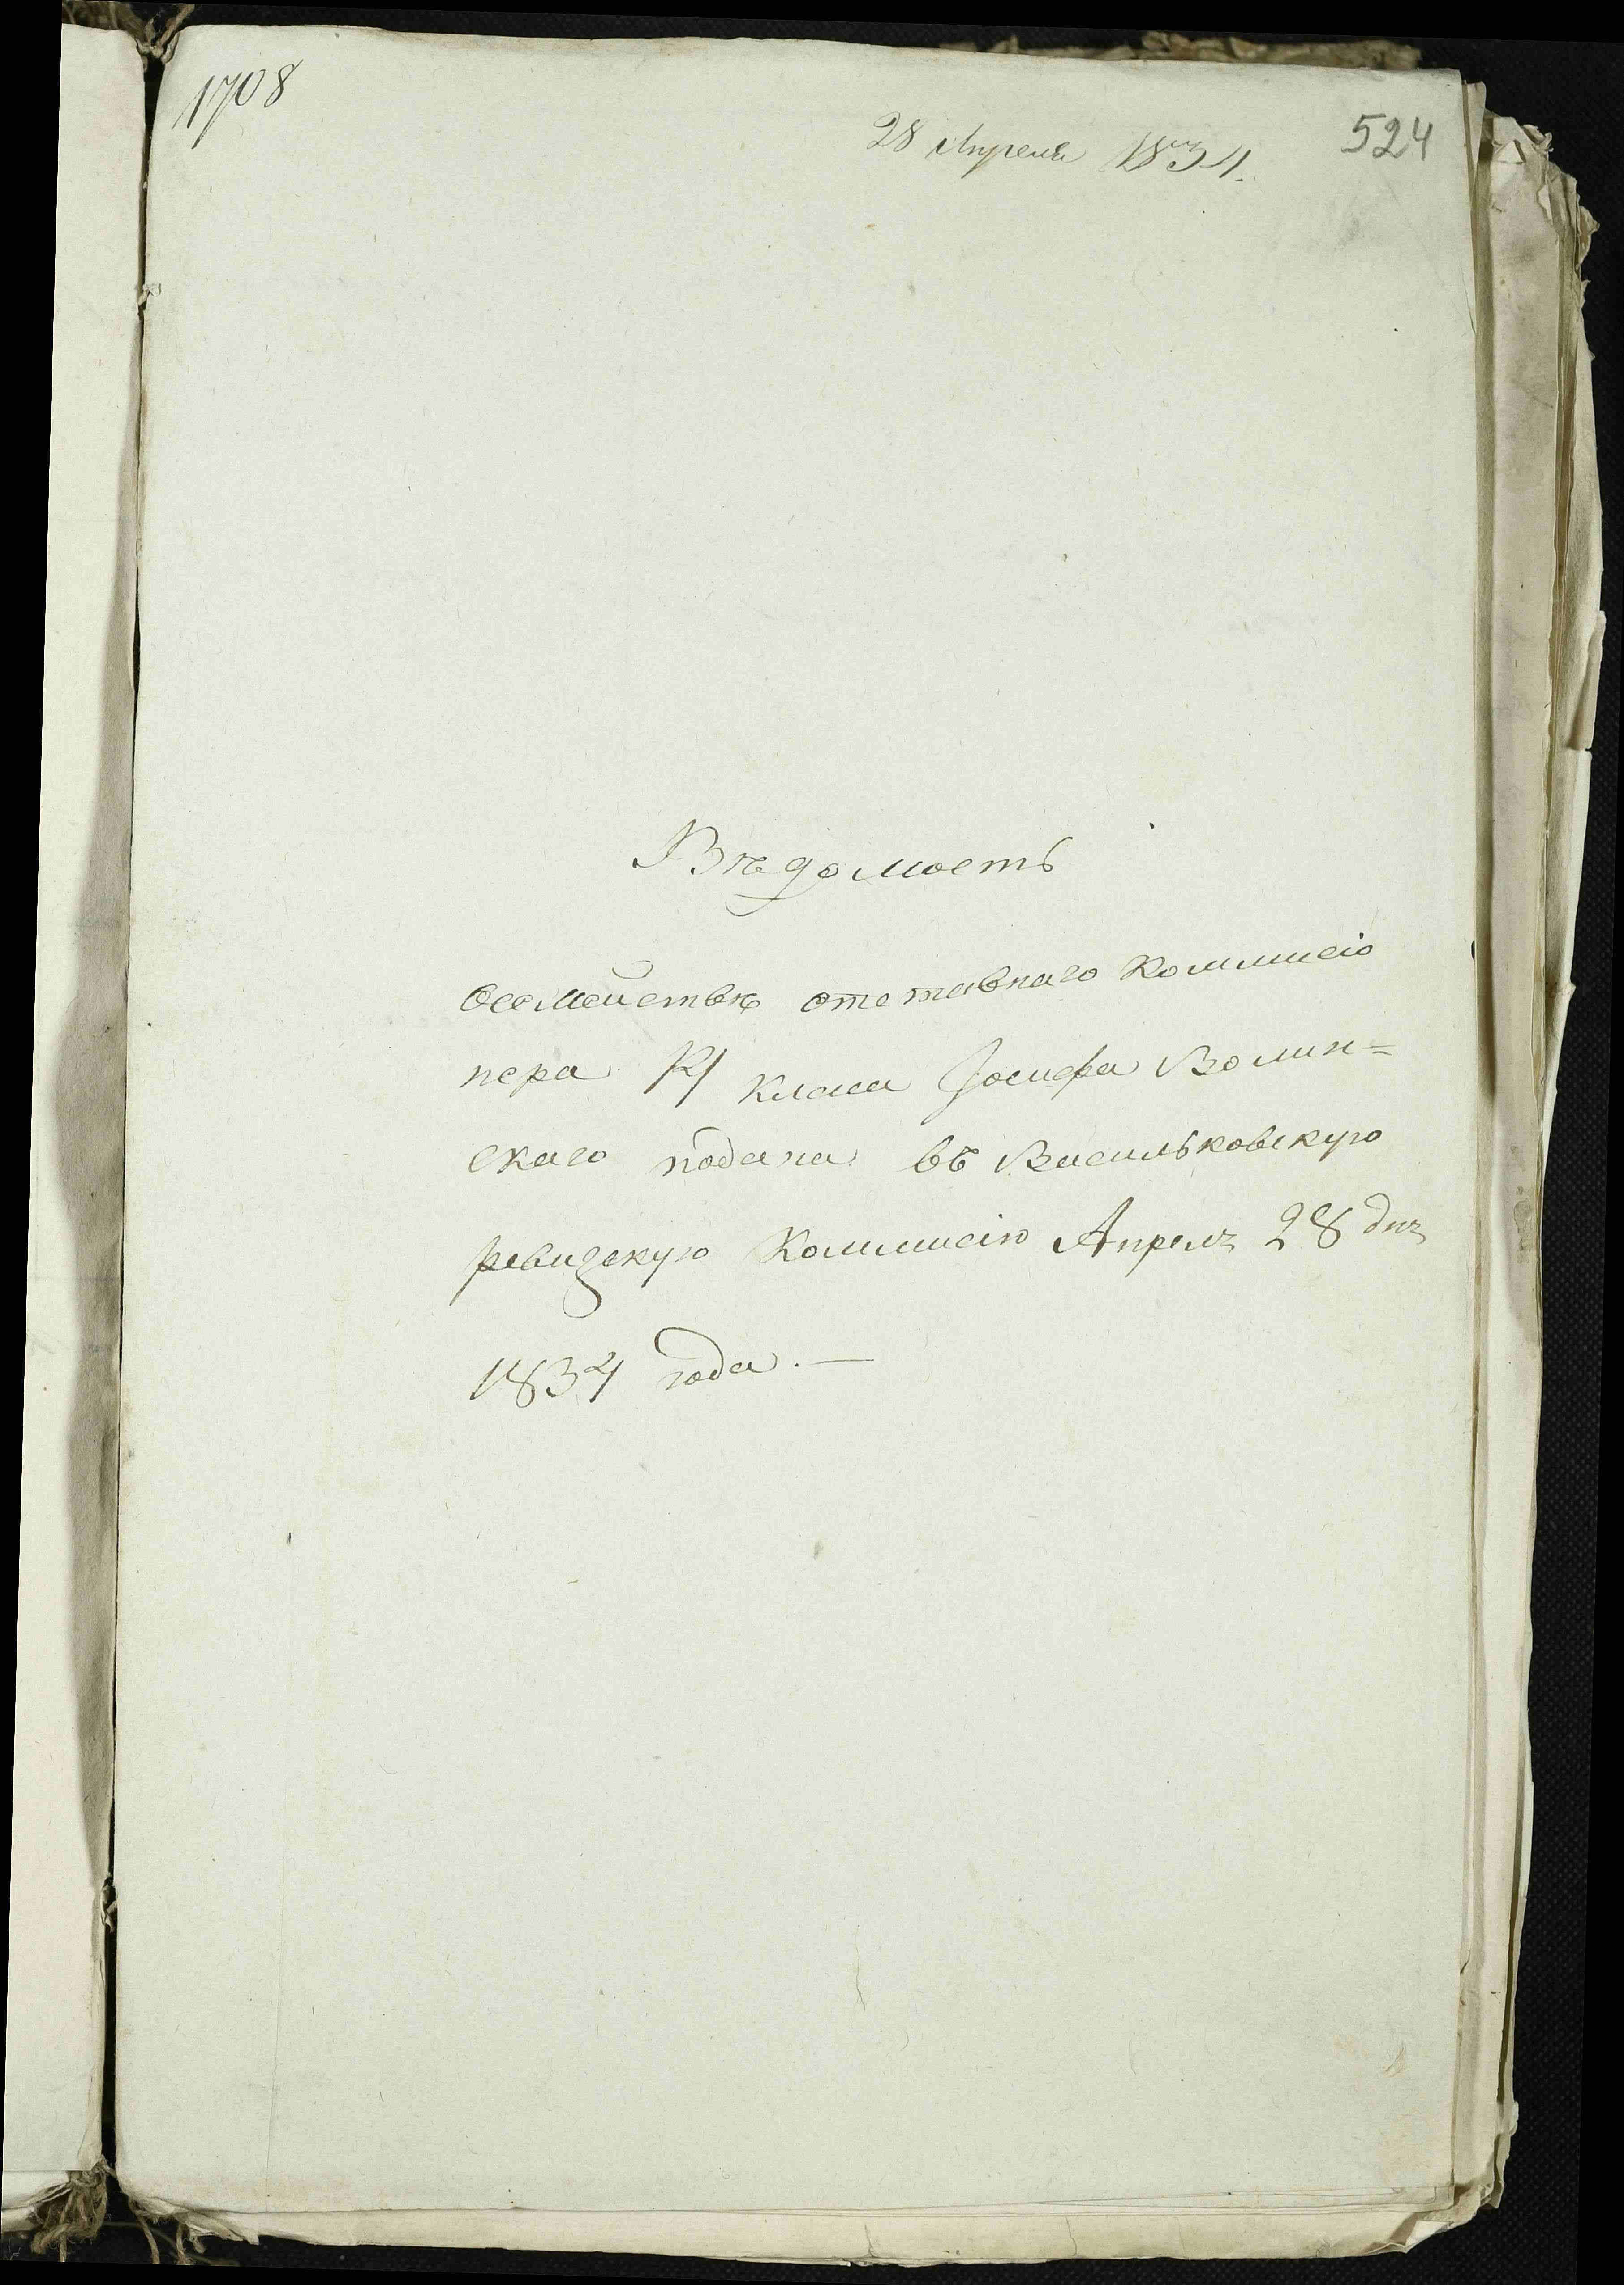 1708
28 Апреля 1834.
524
Ведомость
Осемействе отставнаго Коммисіо
нера 14 класа Іосифа Волин=
скаго подана въ Васильковскую
ревизскую Коммисію Апреля 28 дня
1834 года. —